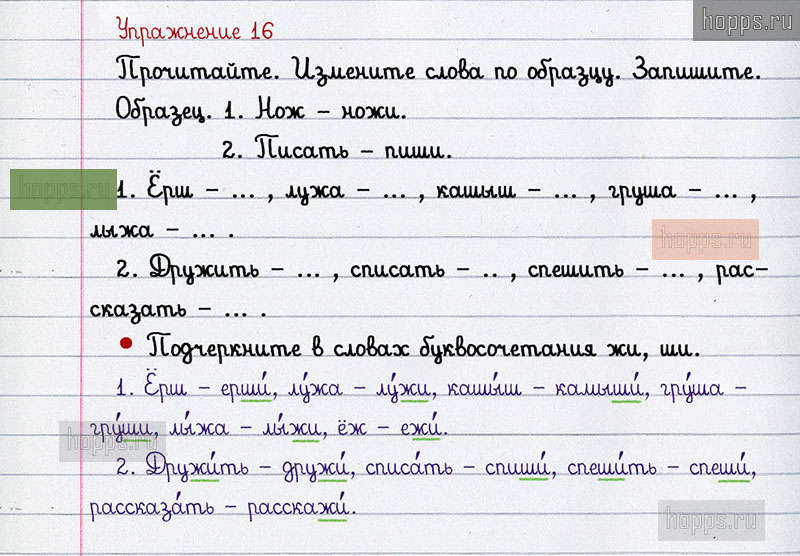 hopps.ru
Упражнение 16
Прочитайте. Измените слова по образцу. Запишите.
Образец. 1. Нож – ножи.
2. Писать – пиши.
hopps.ru
1. Ёрш – ... , лужа – ... , кашыш – ... , груша – ... ,
лыжа – ... .
hopps.ru
2. Дружить – ... , списать – .. , спешить – ... , рас-
сказать – ... .
• Подчеркните в словах буквосочетания жи, ши.
1. Ёрш – ерши́, лу́жа – лу́жи, кашы́ш – камыши́, гру́ша –
гру́ши, лы́жа – лы́жи, ёж – ежи́.
hopps.ru
2. Дружи́ть – дружи́, списа́ть – спиши́, спеши́ть – спеши́,
рассказа́ть – расскажи́.
hopps.ru